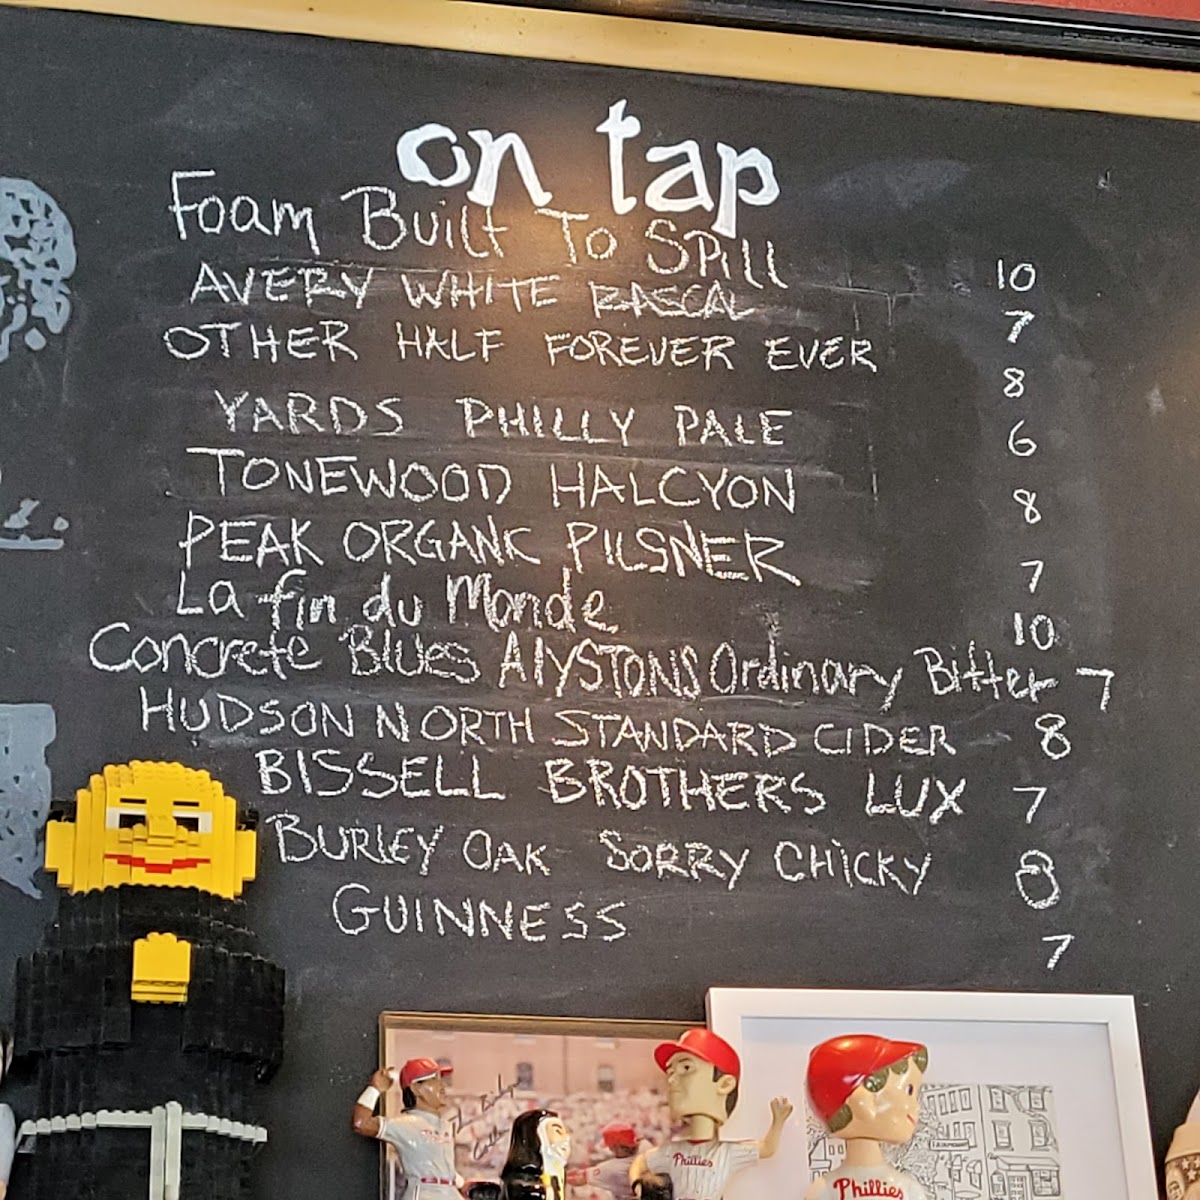 on tap
Foam Built To Spill 10
AVERY WHITE RASCAL 7
OTHER HALF FOREVER EVER 8
YARDS PHILLY PALE 6
TONEWOOD HALCYON 8
PEAK ORGANIC PILSNER 7
La fin du Monde 10
Concrete Blues AlYSTONS Ordinary Bitter 7
HUDSON NORTH STANDARD CIDER 8
BISSELL BROTHERS LUX 7
BURLEY OAK SORRY CHICKY 8
GUINNESS 7
Phillies
Phillies